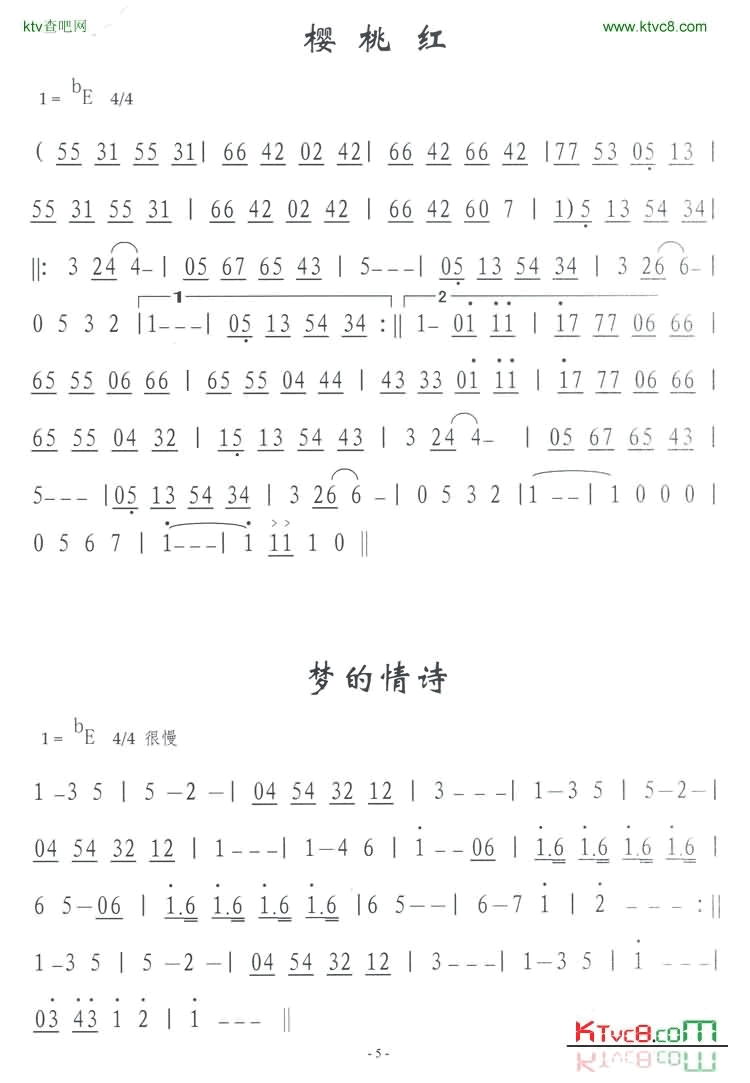 ktv查吧网
www.ktvc8.com
樱 桃 红
1= bE 4/4
( 55 31 55 31| 66 42 02 42| 66 42 66 42 |77 53 05 13 |
55 31 55 31 | 66 42 02 42| 66 42 60 7 | 1)5 13 54 34|
‖: 3 24 4–| 05 67 65 43 | 5---| 05 13 54 34 | 3 26 6–|
1 2
0 5 3 2 |1---| 05 13 54 34 :‖ 1- 01 11 | 17 77 06 66|
65 55 06 66 | 65 55 04 44 | 43 33 01 11 | 17 77 06 66 |
65 55 04 32 | 15 13 54 43 | 3 24 4– | 05 67 65 43 |
5--- |05 13 54 34 | 3 26 6 –| 0 5 3 2 |1 --| 1 0 0 0 |
0 5 6 7 | 1---| 1 11 1 0 ‖
> >
梦的情诗
1= bE 4/4 很慢
1 –3 5 | 5 –2 –| 04 54 32 12 | 3 ---| 1–3 5 | 5–2–|
04 54 32 12 | 1---| 1–4 6 | 1 --06 | 1.6 1.6 1.6 1.6|
6 5–06 | 1.6 1.6 1.6 1.6 |6 5--| 6–7 1 | 2 --- :‖
1 –3 5 | 5 –2 –| 04 54 32 12 | 3 ---| 1–3 5 | 1 ---|
03 43 1 2 | 1 --- ‖
- 5 -
KTvc8.com